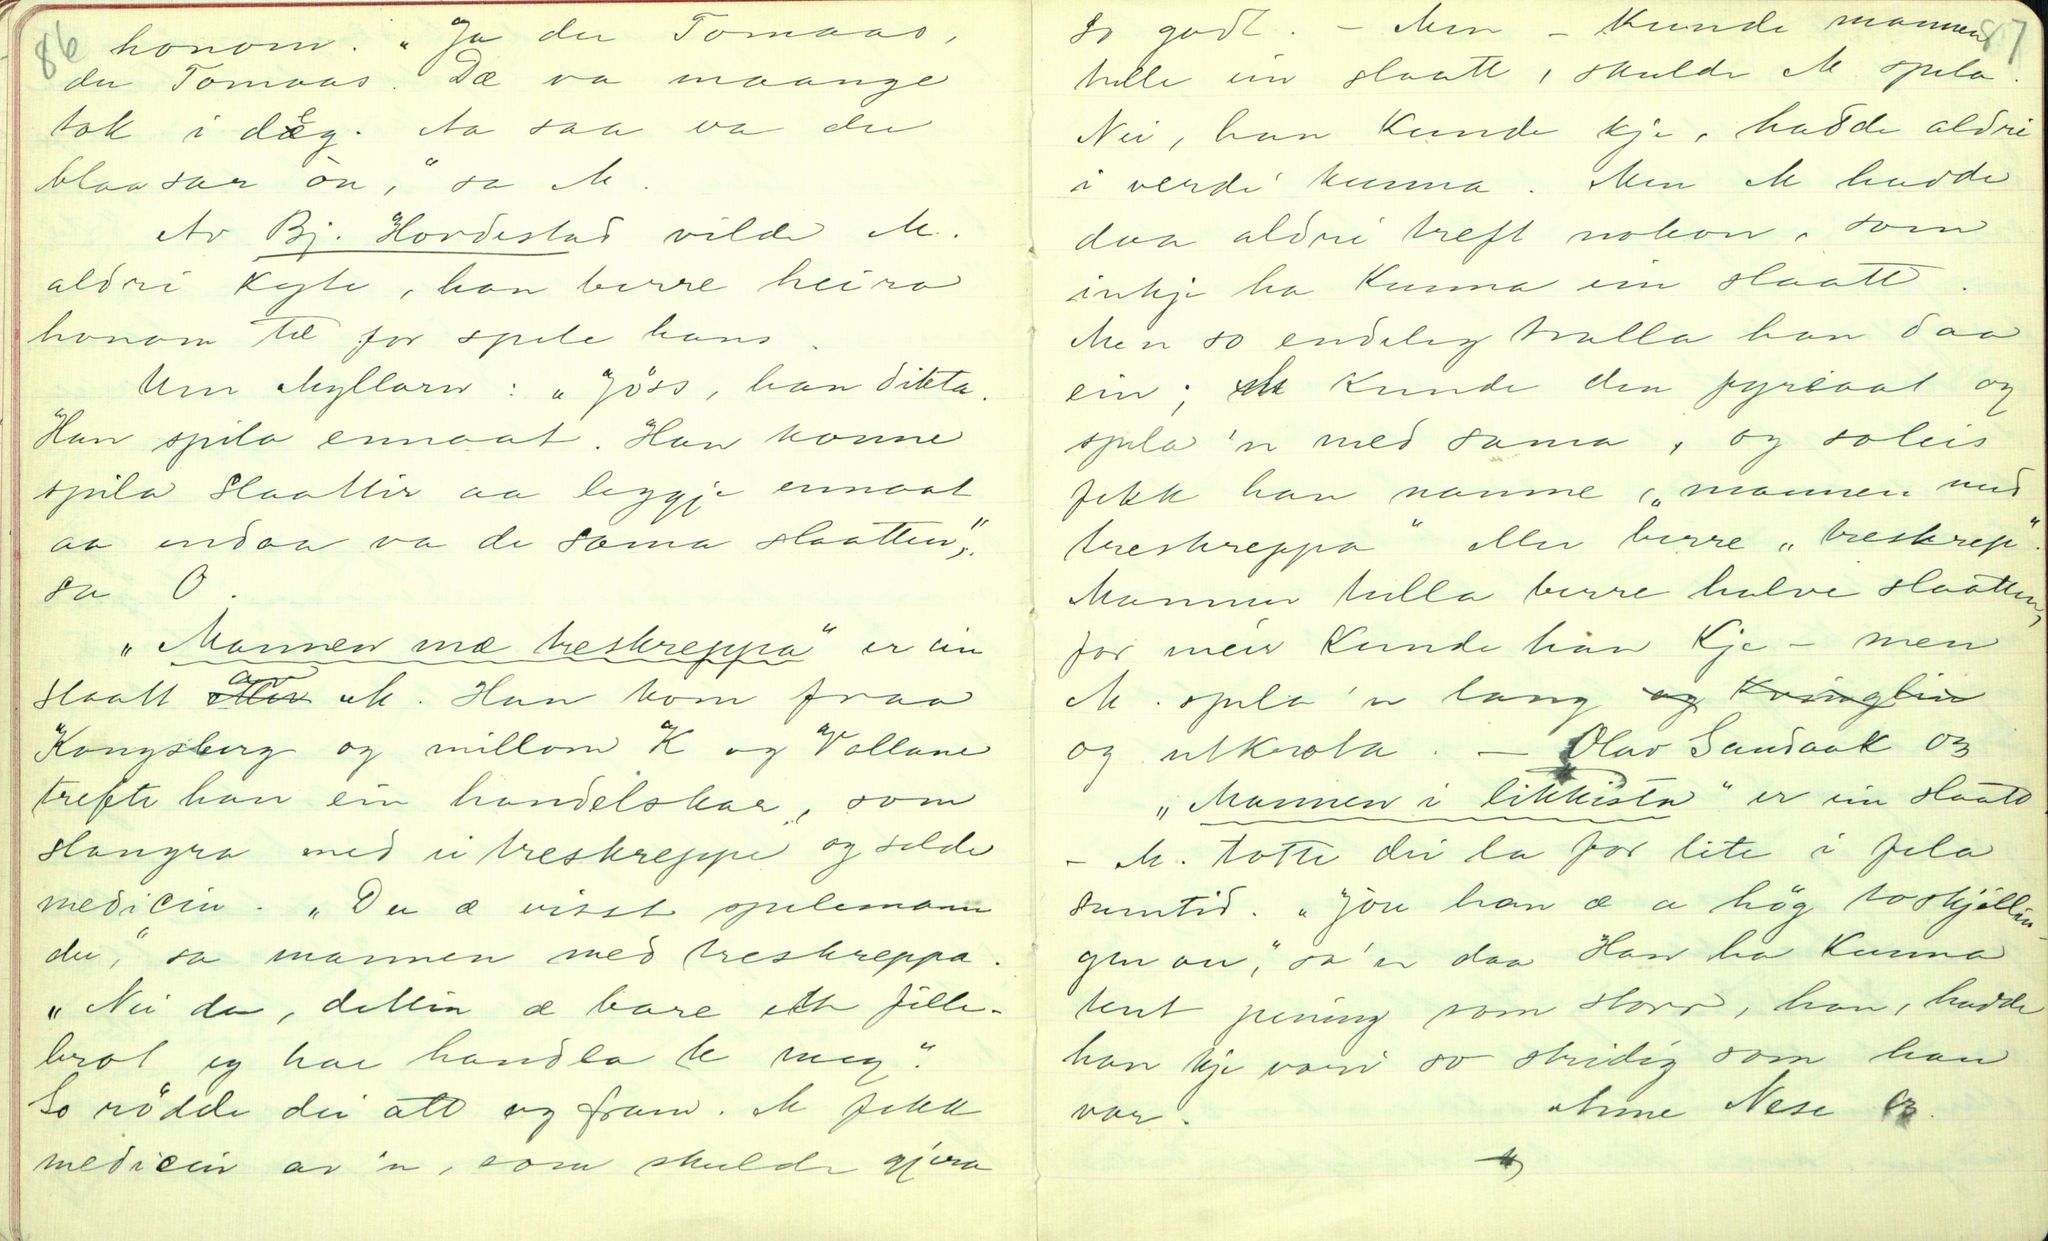 86
honom. „Ja du Tomaas,
du Tomaas. Dæ va maange
tok i dæg. Aa saa va du
blaasar òn," sa M.
Av Bj. Hovdestad vilde M.
aldri kyte, han berre heira
honom te for spele hans.
Um Myllarn: „Jøss, han dikta.
Han spila ennaat. Han konne
spila slaattir aa leggje ennaat
aa endaa va de sama slaatten",
sa O.
„Mannen mæ treskreppa" er ein
slaatt av M. Han kom fraa
Kongsberg og millom K og Vallane
trefte han ein handelskar, som
slangra med ei treskreppe og selde
medicin. „Du æ visst spelemann
du," sa mannen med treskreppa.
„Nei da, dettin æ bare ett fille-
brot eg hae handla te meg".
So rødde dei att og fram. M fekk
medicin av 'n, som skulde gjera
87
so godt. – Men – kunde mannen
tulle ein slaatt, skulde M spela.
Nei, han kunde kje, hadde aldri
i verdi kunna. Men M hadde
daa aldri treft nokon, som
inkje ha kunna ein slaatt.
Men so endeleg tralla han daa
ein; M kunde den fyreaat og
spela 'n med sama, og soleis
fekk han namne „mannen med
treskreppa" eller berre „treskrep".
Mannen tulla berre halve slaatten,
for meir kunde han kje – men
M. spela 'n lang og kringlin
og utkrota. – Olav Sandaak
„Mannen i likkista" er ein slaatt
– M. totte dei la for lite i fela
sumtid. „Jøu han æ a høg toskjillin-
gen au," sa'n daa Han ha kunna
tent pening som storr, han, hadde
han kje vori so stridig som han
var. Anne Nese